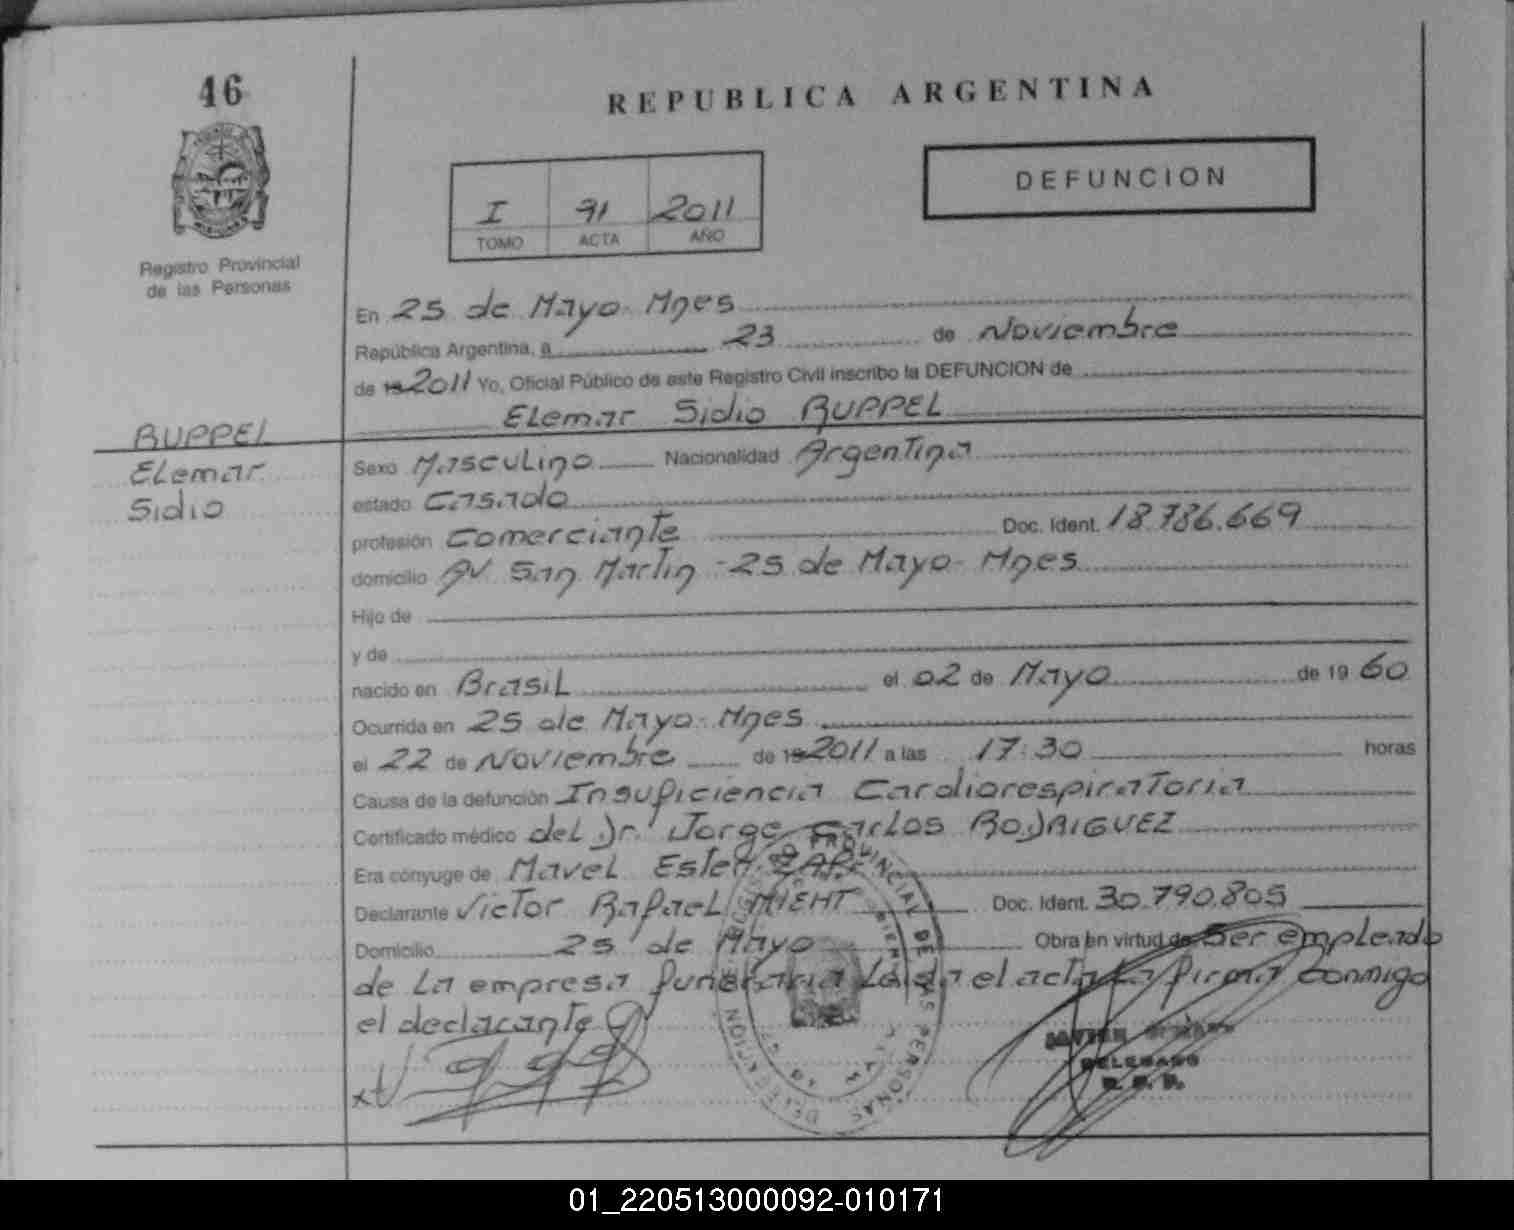 46
REPUBLICA ARGENTINA
DEFUNCION
I 91 2011
TOMO ACTA AÑO
Registro Provincial
de las Personas
En 25 de Mayo-Mnes
República Argentina, a 23 de Noviembre
de 19 2011 Yo, Oficial Público de este Registro Civil inscribo la DEFUNCION de
Elemar Sidio RUPPEL
RUPPEL
Elemar
Sidio
Sexo Masculino Nacionalidad Argentina
estado Casado
profesión Comerciante Doc. Ident. 18.786.669
domicilio AV San Martin - 25 de Mayo- Mnes
Hijo de
y de
nacido en BrasiL el 02 de Mayo de 19 60
Ocurrida en 25 de Mayo- Mnes
el 22 de Noviembre de 19 2011 a las 17:30 horas
Causa de la defunción Insuficiencia Cardiorespiratoria
Certificado médico del Dr. Jorge Carlos RODRIGUEZ
Era cónyuge de Mavel Ester
Declarante Victor Rafael MIEHT Doc. Ident. 30.790.805
Domicilio 25 de Mayo Obra en virtud de Ser empleado
de La empresa funeraria Leida el acta La firma conmigo
el declarante
DELEGADO
01_220513000092-010171